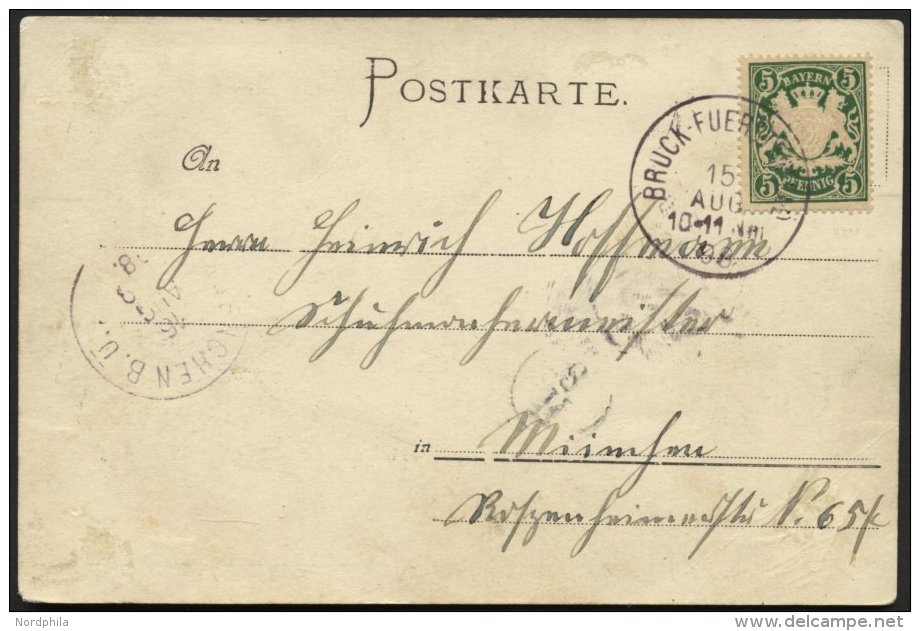 POSTKARTE.
5 BAYERN 5
5 PFENNIG 5
BRUCK-FUER
15
AUG
10-11 Nm
98
An
Herrn Heinrich Hoffmann
Schuhmachermeister
CHEN B. Ü.
in München
Rosenheimerstr N. 65/
Nordphila
www.delcampe.net